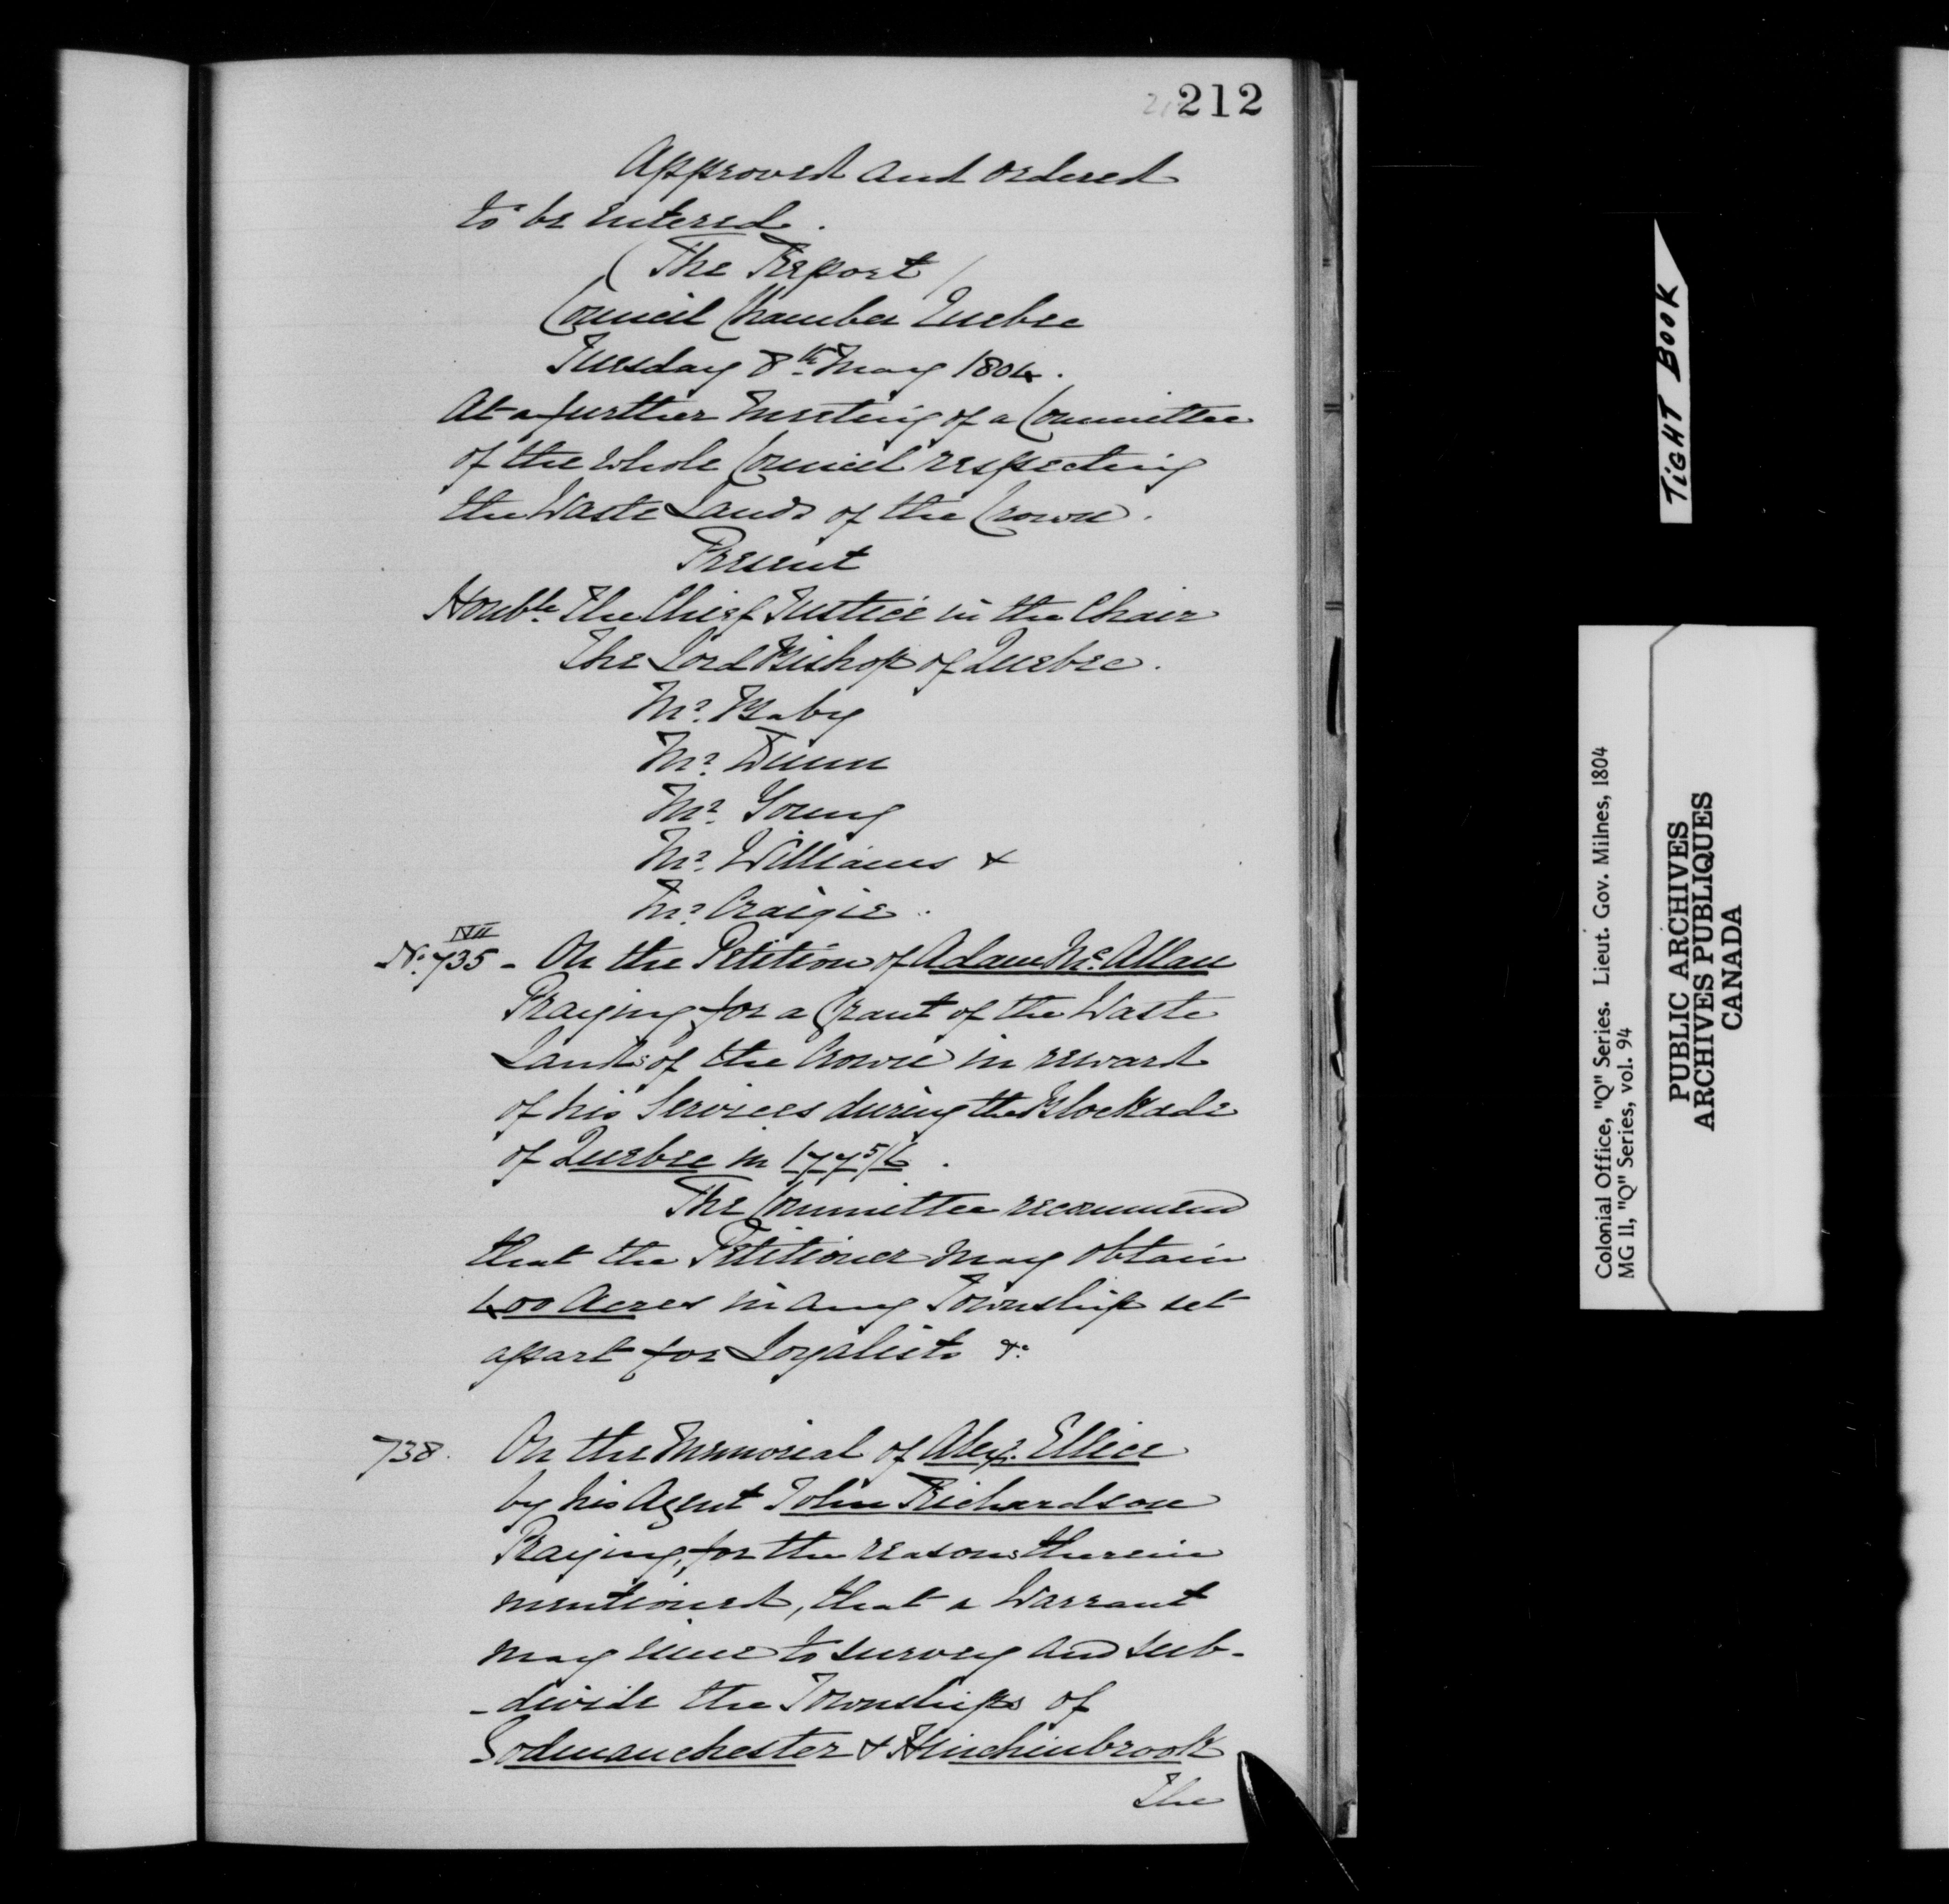 212
Approved and ordered
to be entered.
(The Report)
Council Chamber Quebec
Tuesday 8th May 1804.
At a further Meeting of a Committee
of the whole Council respecting
the Waste Lands of the Crown.
Present
Honble. The Chief Justice in the Chair
The Lord Bishop of Quebec.
Mr. Baby
Mr. Dunn
Mr. Young
Mr. Williams &
Mr. Craigie.
No. 735 - On the Petition of Adam McAllan
Praying for a Grant of the Waste
Lands of the Crown in reward
of his Services during the Blockade
of Quebec in 1775/6.
The Committee recommend
that the Petitioner may obtain
400 Acres in any Township set
apart for Loyalists &c
738. On the Memorial of Alexr. Ellice
by his Agent John Richardson
Praying, for the reasons therein
mentioned, that a Warrant
may issue to survey and sub-
-divide the Townships of
Godmanchester & Hinchinbrook
The
TIGHT BOOK
Colonial Office, "Q" Series. Lieut. Gov. Milnes, 1804
MG 11, "Q" Series, vol. 94
PUBLIC ARCHIVES
ARCHIVES PUBLIQUES
CANADA